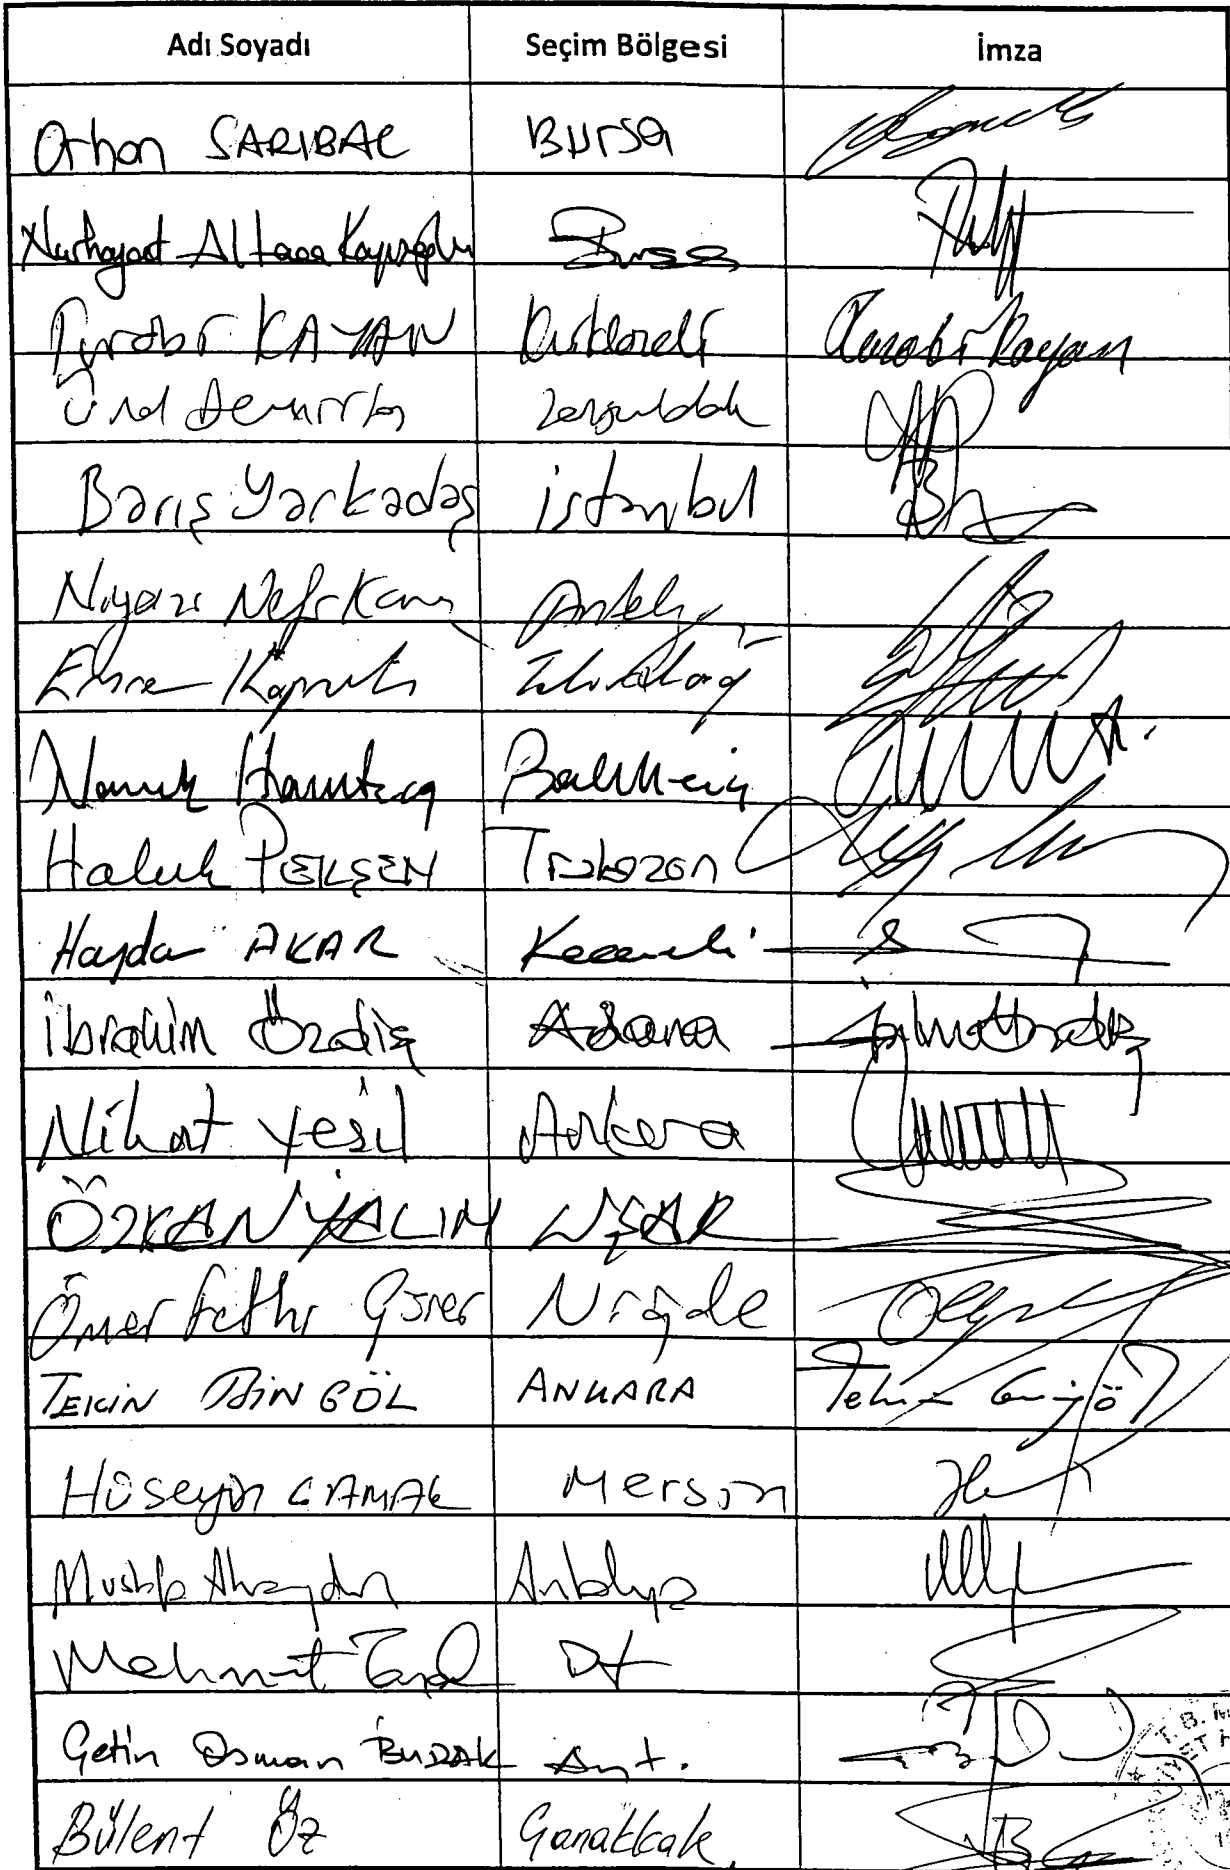 Adı Soyadı Seçim Bölgesi İmza
Orhan SARIBAL Bursa
Nurhayat Altaca Kayışoğlu Bursa
Turabi KAYAN Kırklareli Turabi Kayan
Ünal Demirtaş Zonguldak
Barış Yarkadaş İstanbul
Niyazi Nefi Kara Antalya
Emre Köprülü Tekirdağ
Namık Havutça Balıkesir
Haluk PEKŞEN Trabzon
Haydar AKAR Kocaeli
İbrahim Özdiş Adana
Nihat Yeşil Ankara
ÖZKAN YALIM UŞAK
Ömer Fethi Gürer Niğde
TEKİN BİNGÖL ANKARA Tekin Bingöl
Hüseyin ÇAMAK Mersin
Mustafa Akaydın Antalya
Mehmet
Çetin Osman BUDAK Ant.
Bülent Öz Çanakkale